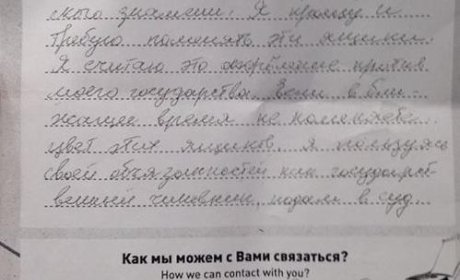 ского знамени. Я прошу и
требую поменять эти ящики.
Я считаю это оскорбление против
моего государства. Если в бли-
жайшее время не поменяете
цвет этих ящиков, я пользуясь
своей обязанностей как государст-
венный чиновник, подам в суд.
Как мы можем с Вами связаться?
How we can contact with you?